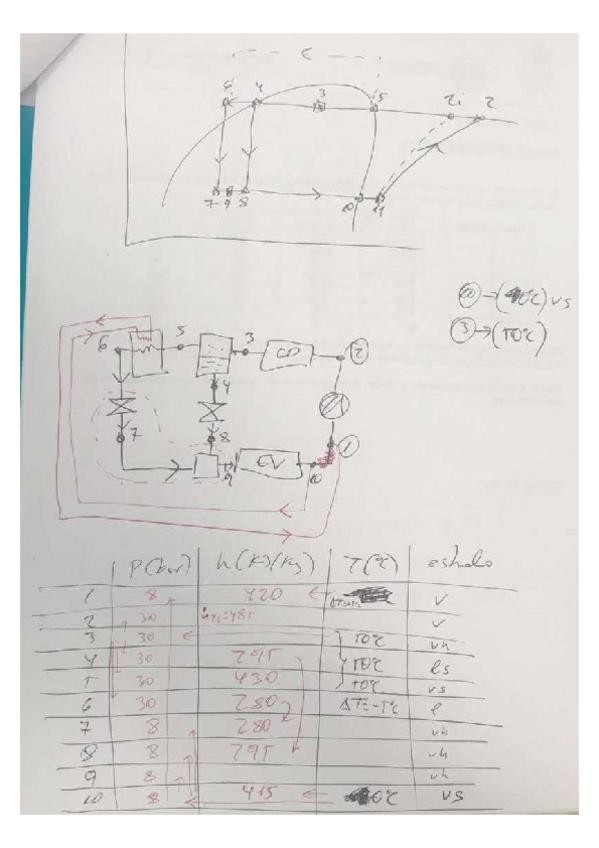 6 4 3 5 2i 2
7 9 8 10 1
⑩→( 0℃) vs
③→(50℃)
5 3 CD ②
6
4
7 8 ①
9 EV 10
P(bar) h(KJ/Kg) T(℃) estado
1 8 420 v
2 30 h2i=485 v
3 30 50℃ vh
4 30 295 50℃ ls
5 30 430 50℃ vs
6 30 280 l
7 8 280 vh
8 8 295 vh
9 8 vh
10 8 415 0℃ vs